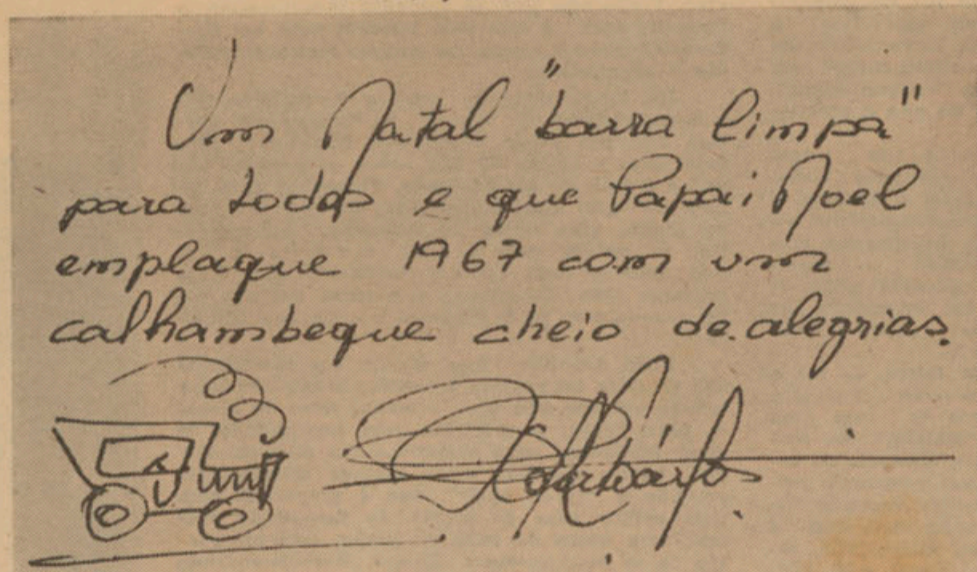 Um Natal "barra limpa"
para todos e que Papai Noel
emplaque 1967 com um
calhambeque cheio de alegrias.